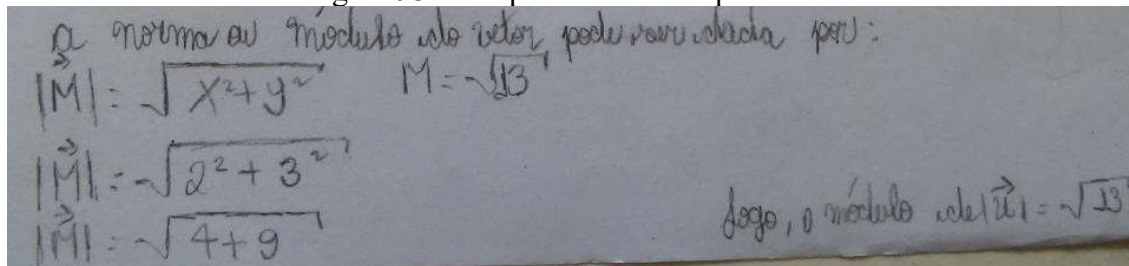 a norma ou módulo do vetor pode ser dada por:
|M⃗| = √x²+y²
M = √13
|M⃗| = √2² + 3²
|M⃗| = √4+9
Logo, o módulo de |u⃗| = √13